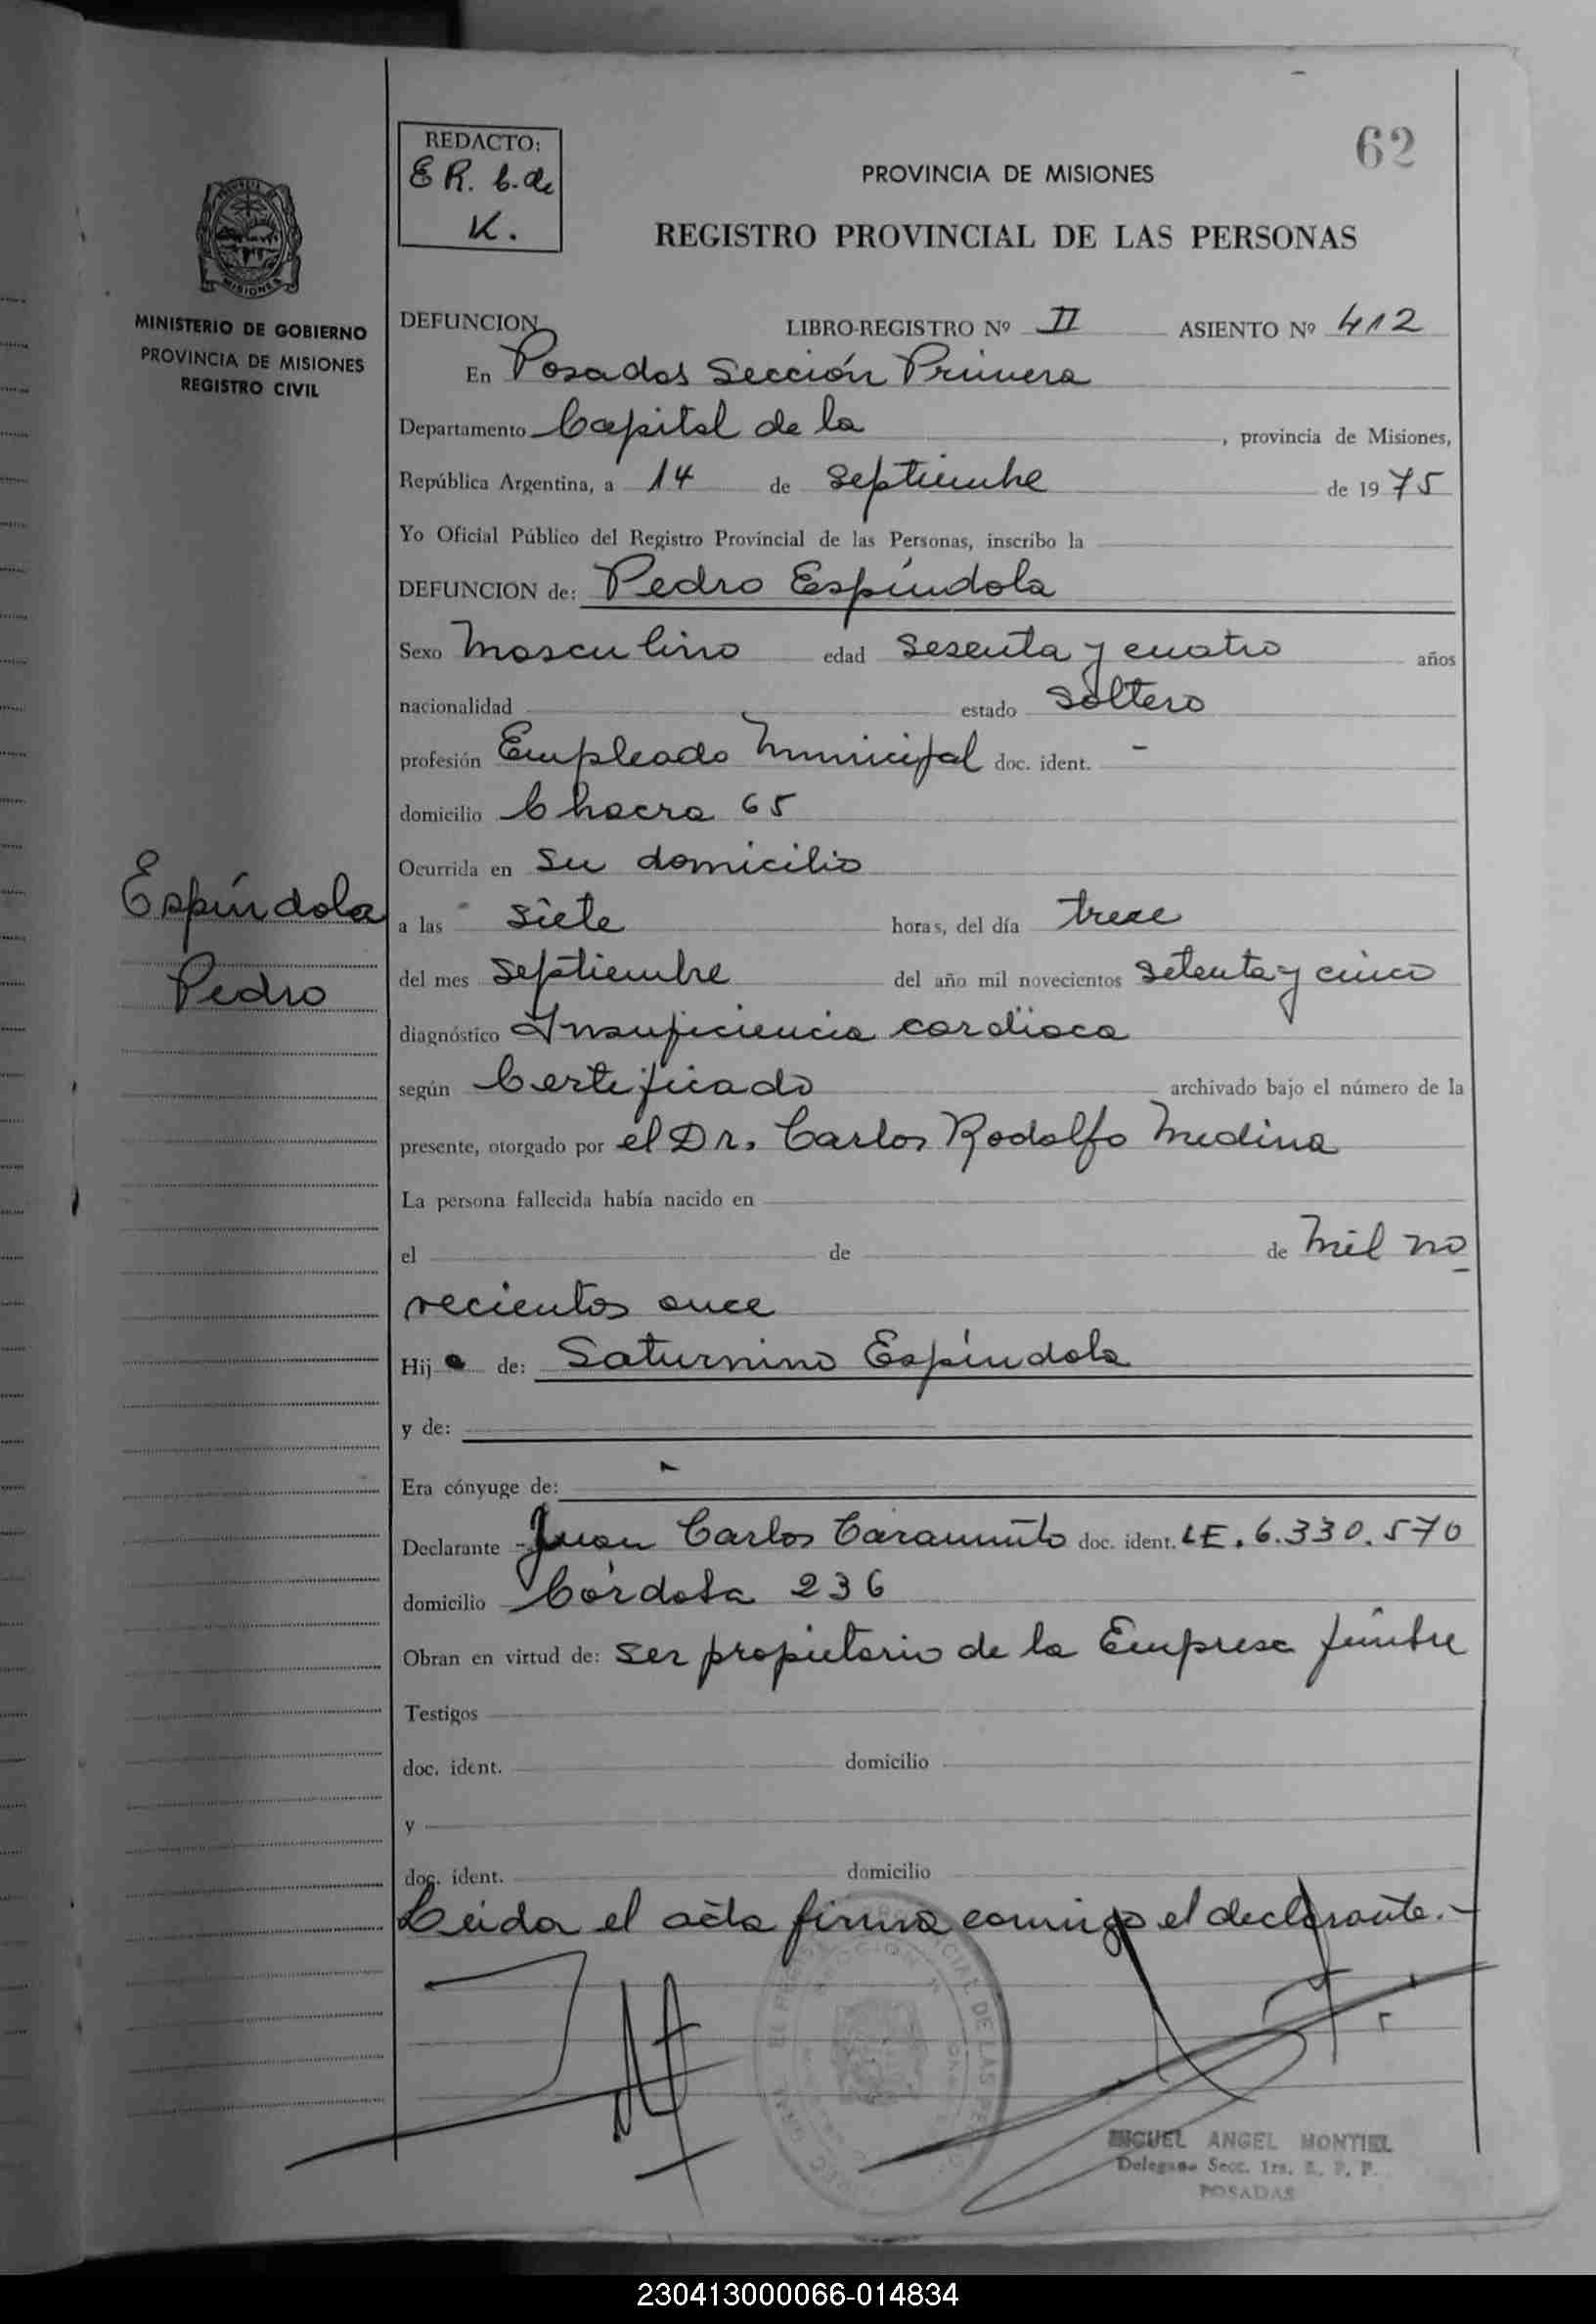 62
REDACTO:
E R. C. de
K.
PROVINCIA DE MISIONES
REGISTRO PROVINCIAL DE LAS PERSONAS
MISIONES
MINISTERIO DE GOBIERNO
PROVINCIA DE MISIONES
REGISTRO CIVIL
DEFUNCION LIBRO-REGISTRO Nº II ASIENTO Nº 412
En Posadas Sección Primera
Departamento Capital de la , provincia de Misiones,
República Argentina, a 14 de Septiembre de 1975
Yo Oficial Público del Registro Provincial de las Personas, inscribo la
DEFUNCION de: Pedro Espíndola
Sexo Masculino edad Sesenta y cuatro años
nacionalidad estado Soltero
profesión Empleado Municipal doc. ident. -
domicilio Chacra 65
Ocurrida en Su domicilio
Espíndola
Pedro
a las Siete horas, del día trece
del mes Septiembre del año mil novecientos Setenta y cinco
diagnóstico Insuficiencia cardíaca
según Certificado archivado bajo el número de la
presente, otorgado por el Dr. Carlos Rodolfo Medina
La persona fallecida había nacido en
el de de Mil no
vecientos once
Hijo de: Saturnino Espíndola
y de:
Era cónyuge de:
Declarante Juan Carlos doc. ident. LE. 6.330.570
domicilio Córdoba 236
Obran en virtud de: Ser propietario de la Empresa fúnebre
Testigos
doc. ident. domicilio
y
doc. ident. domicilio
Leída el acta firma conmigo el declarante.-
MIGUEL ANGEL MONTIEL
Delegado Secc. 1ra. R. P. P.
POSADAS
230413000066-014834